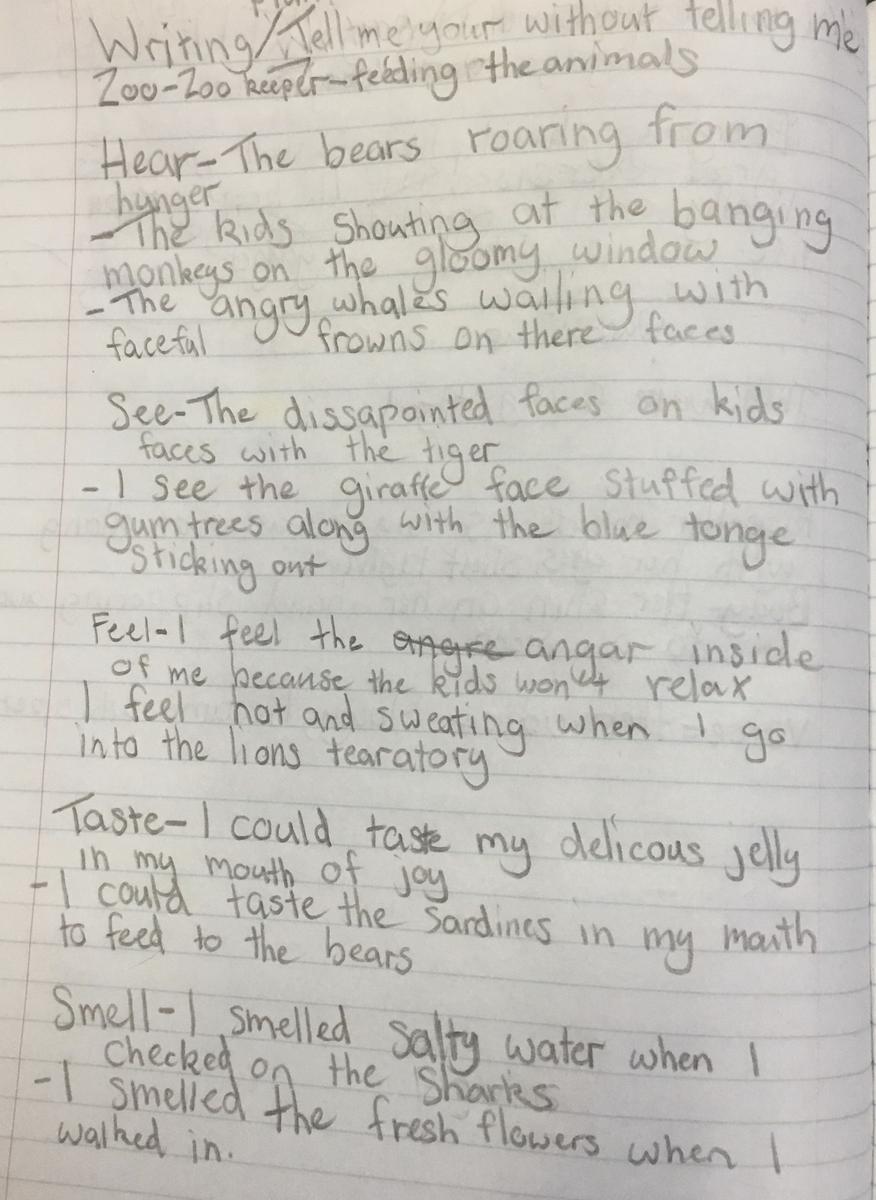 Writing/Tell me your without telling me
Zoo-Zoo keeper-feeding the animals
Hear-The bears roaring from
hunger
-The kids shouting at the banging
monkeys on the gloomy window
-The angry whales wailing with
faceful frowns on there faces
See-The dissapointed faces on kids
faces with the tiger
-I see the giraffe face stuffed with
gum trees along with the blue tonge
sticking out
Feel-I feel the angre angar inside
of me because the kids won't relax
I feel hot and sweating when I go
into the lions tearatory
Taste-I could taste my delicous jelly
in my mouth of joy
-I could taste the sardines in my mouth
to feed to the bears
Smell-I smelled salty water when I
checked on the sharks
-I smelled the fresh flowers when I
walked in.